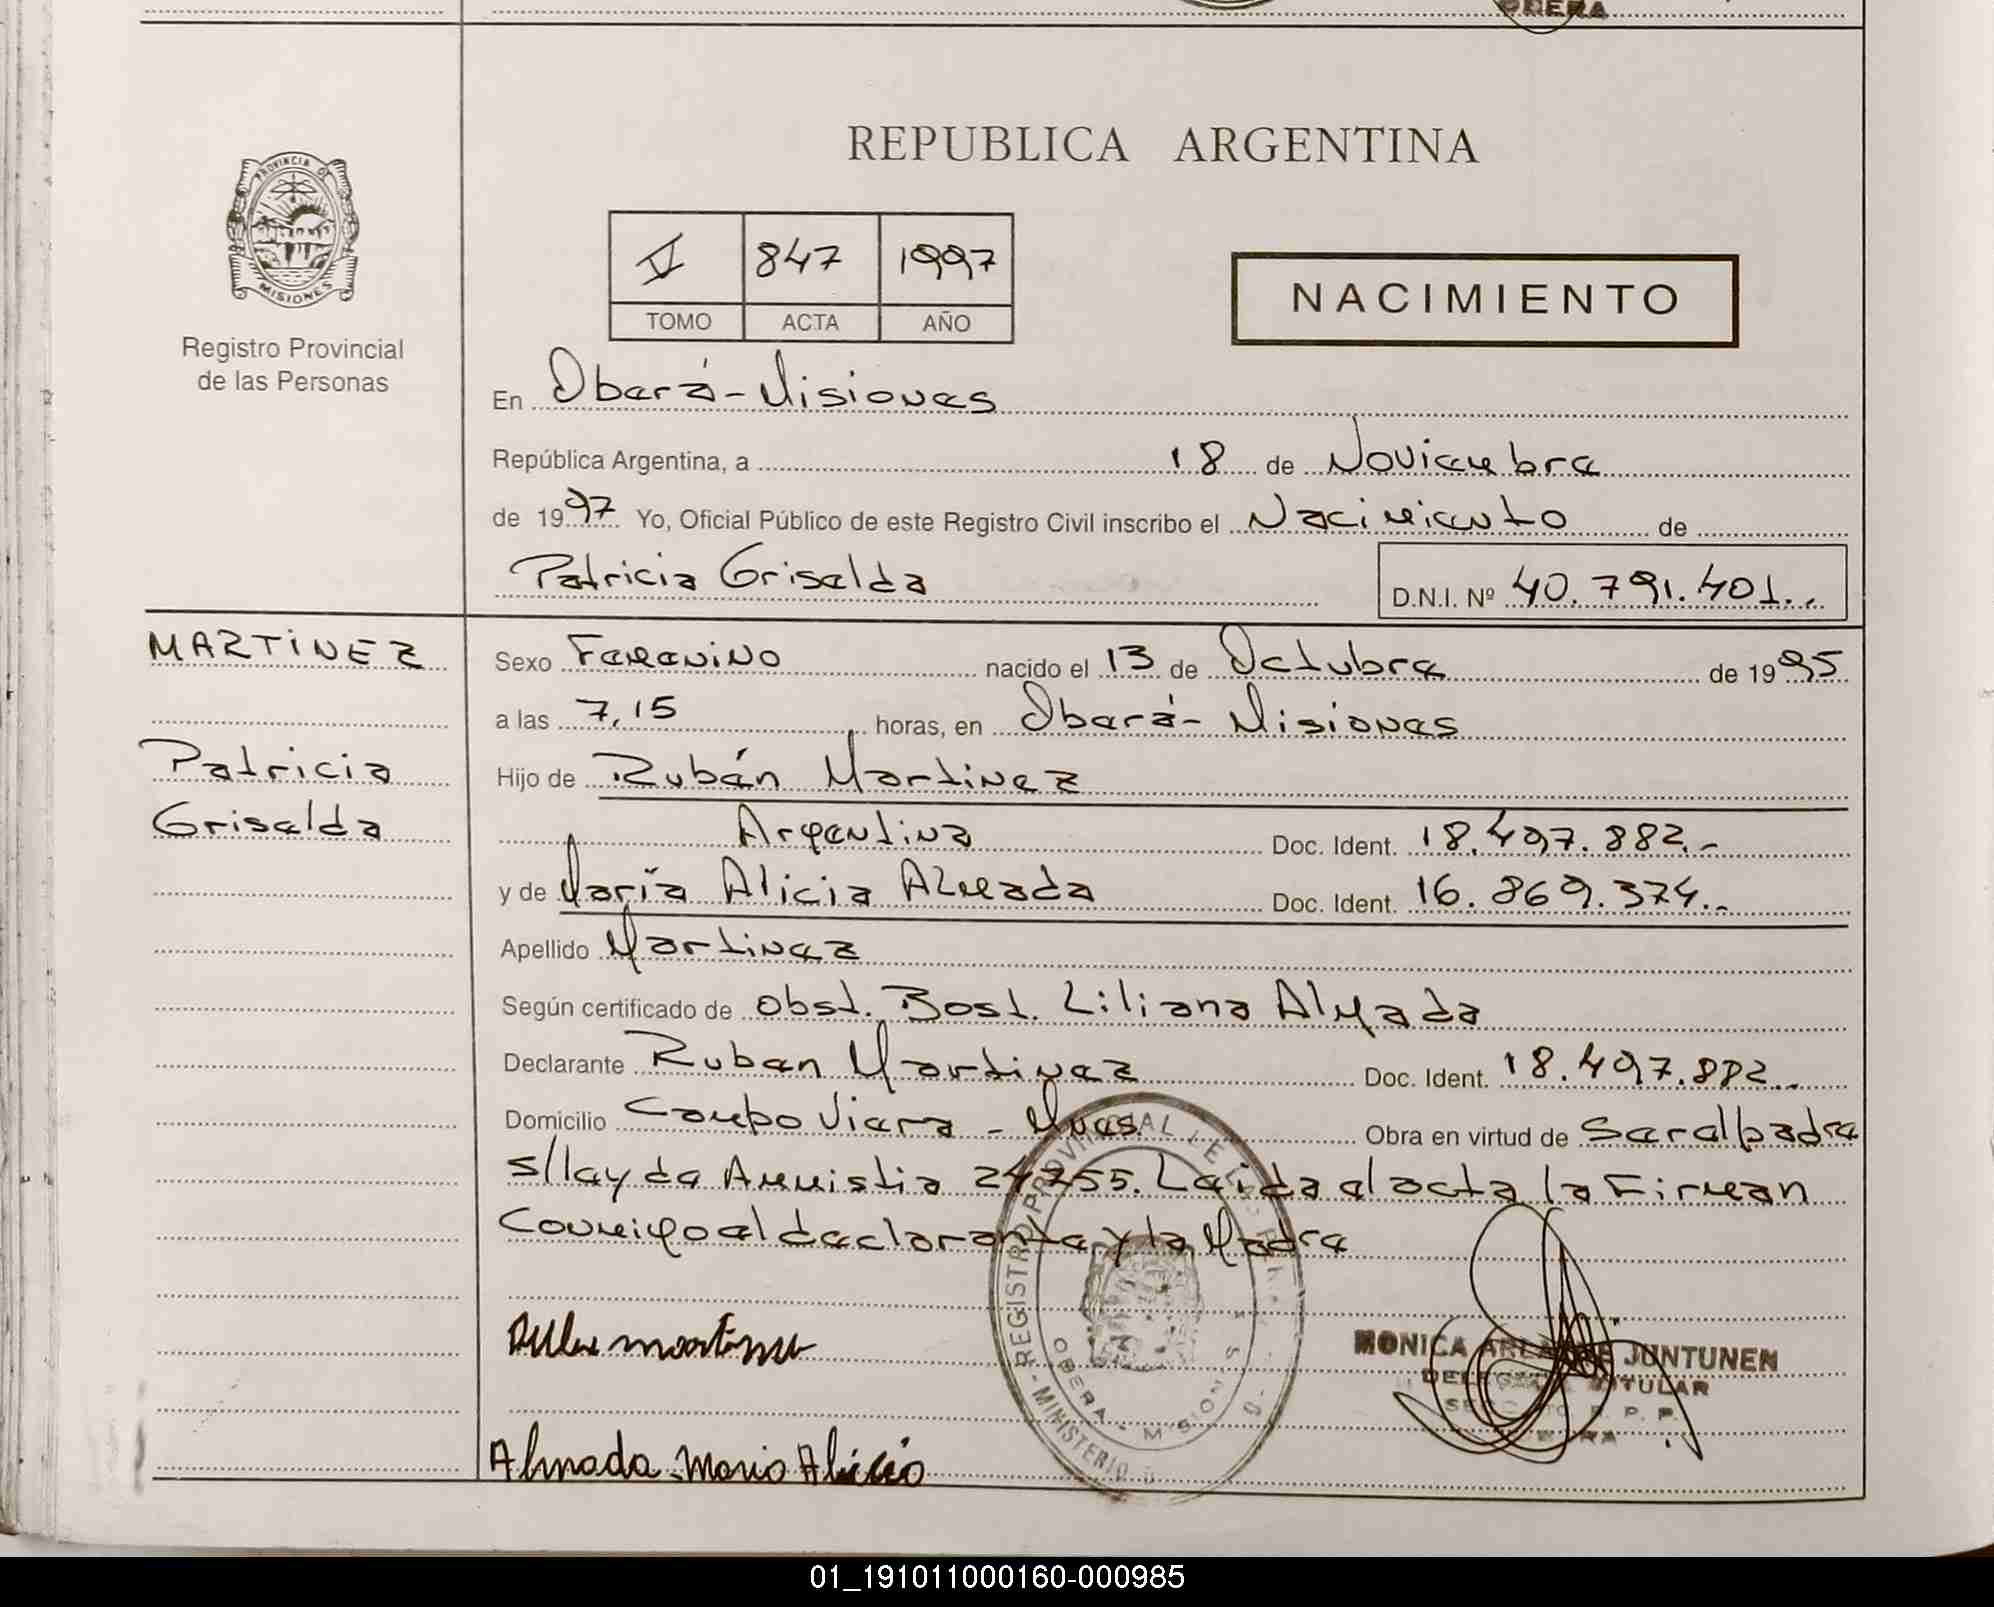 OBERA
REPUBLICA ARGENTINA
PROVINCIA DE MISIONES
Registro Provincial
de las Personas
V 847 1997
TOMO ACTA AÑO
NACIMIENTO
En Oberá - Misiones
República Argentina, a 18 de Noviembre
de 1997 Yo, Oficial Público de este Registro Civil inscribo el Nacimiento de
Patricia Griselda D.N.I. Nº 40.791.401..
MARTINEZ
Patricia
Griselda
Sexo Femenino nacido el 13 de Octubre de 1995
a las 7,15 horas, en Oberá - Misiones
Hijo de Rubén Martinez
Argentina Doc. Ident. 18.497.882.-
y de María Alicia Almada Doc. Ident. 16.869.374.-
Apellido Martinez
Según certificado de obst. Bost. Liliana Almada
Declarante Ruben Martinez Doc. Ident. 18.497.882..
Domicilio Campo Viera - Mnes. Obra en virtud de Ser el padre
s/ley de Amnistia 24755. Leida el acta la Firman
Conmigo el declarante y la Madre
REGISTRO PROVINCIAL DE LAS PERSONAS - MINISTERIO
OBERA - MISIONES
MONICA JUNTUNEN
DELEGADA TITULAR
R. P. P.
OBERA
Almada Maria Alicia
01_191011000160-000985